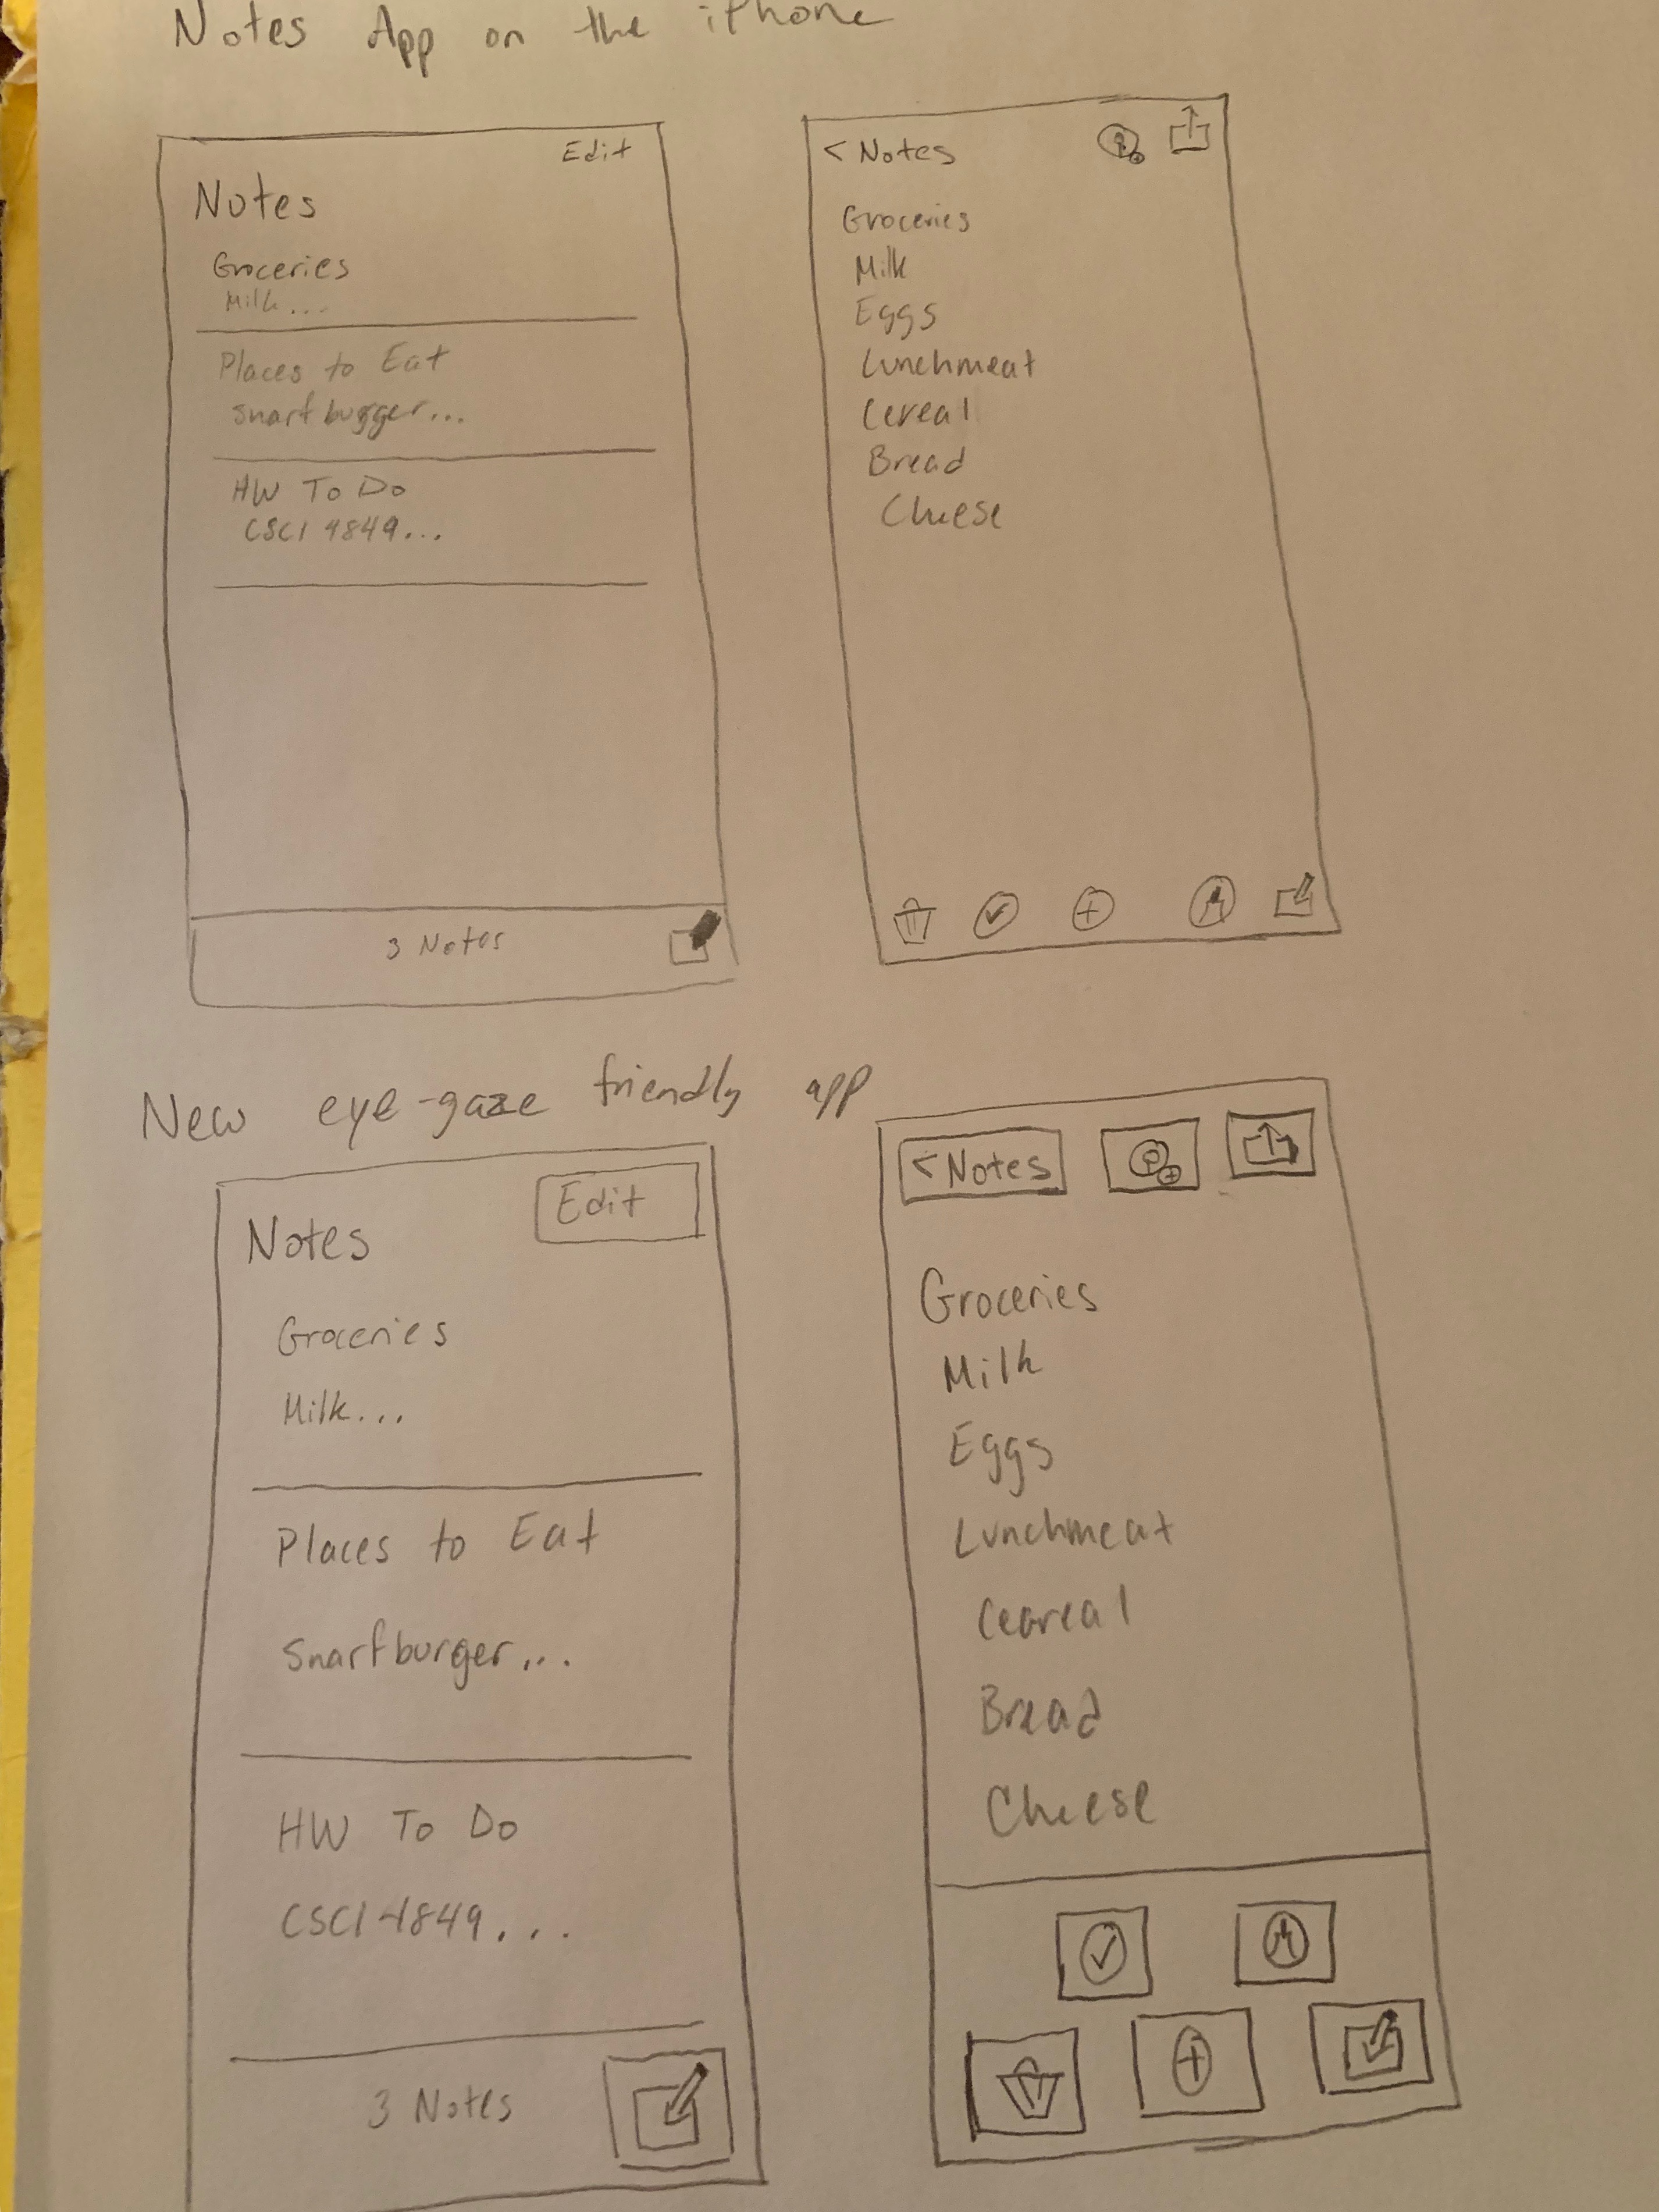 Notes App on the iPhone
Edit
Notes
Groceries
Milk...
Places to Eat
Snarfbugger...
HW To Do
CSCI 4849...
3 Notes
< Notes
Groceries
Milk
Eggs
Lunchmeat
Cereal
Bread
Cheese
New eye-gaze friendly app
Edit
Notes
Groceries
Milk...
Places to Eat
Snarfburger...
HW To Do
CSCI 4849...
3 Notes
< Notes
Groceries
Milk
Eggs
Lunchmeat
Ceareal
Bread
Cheese